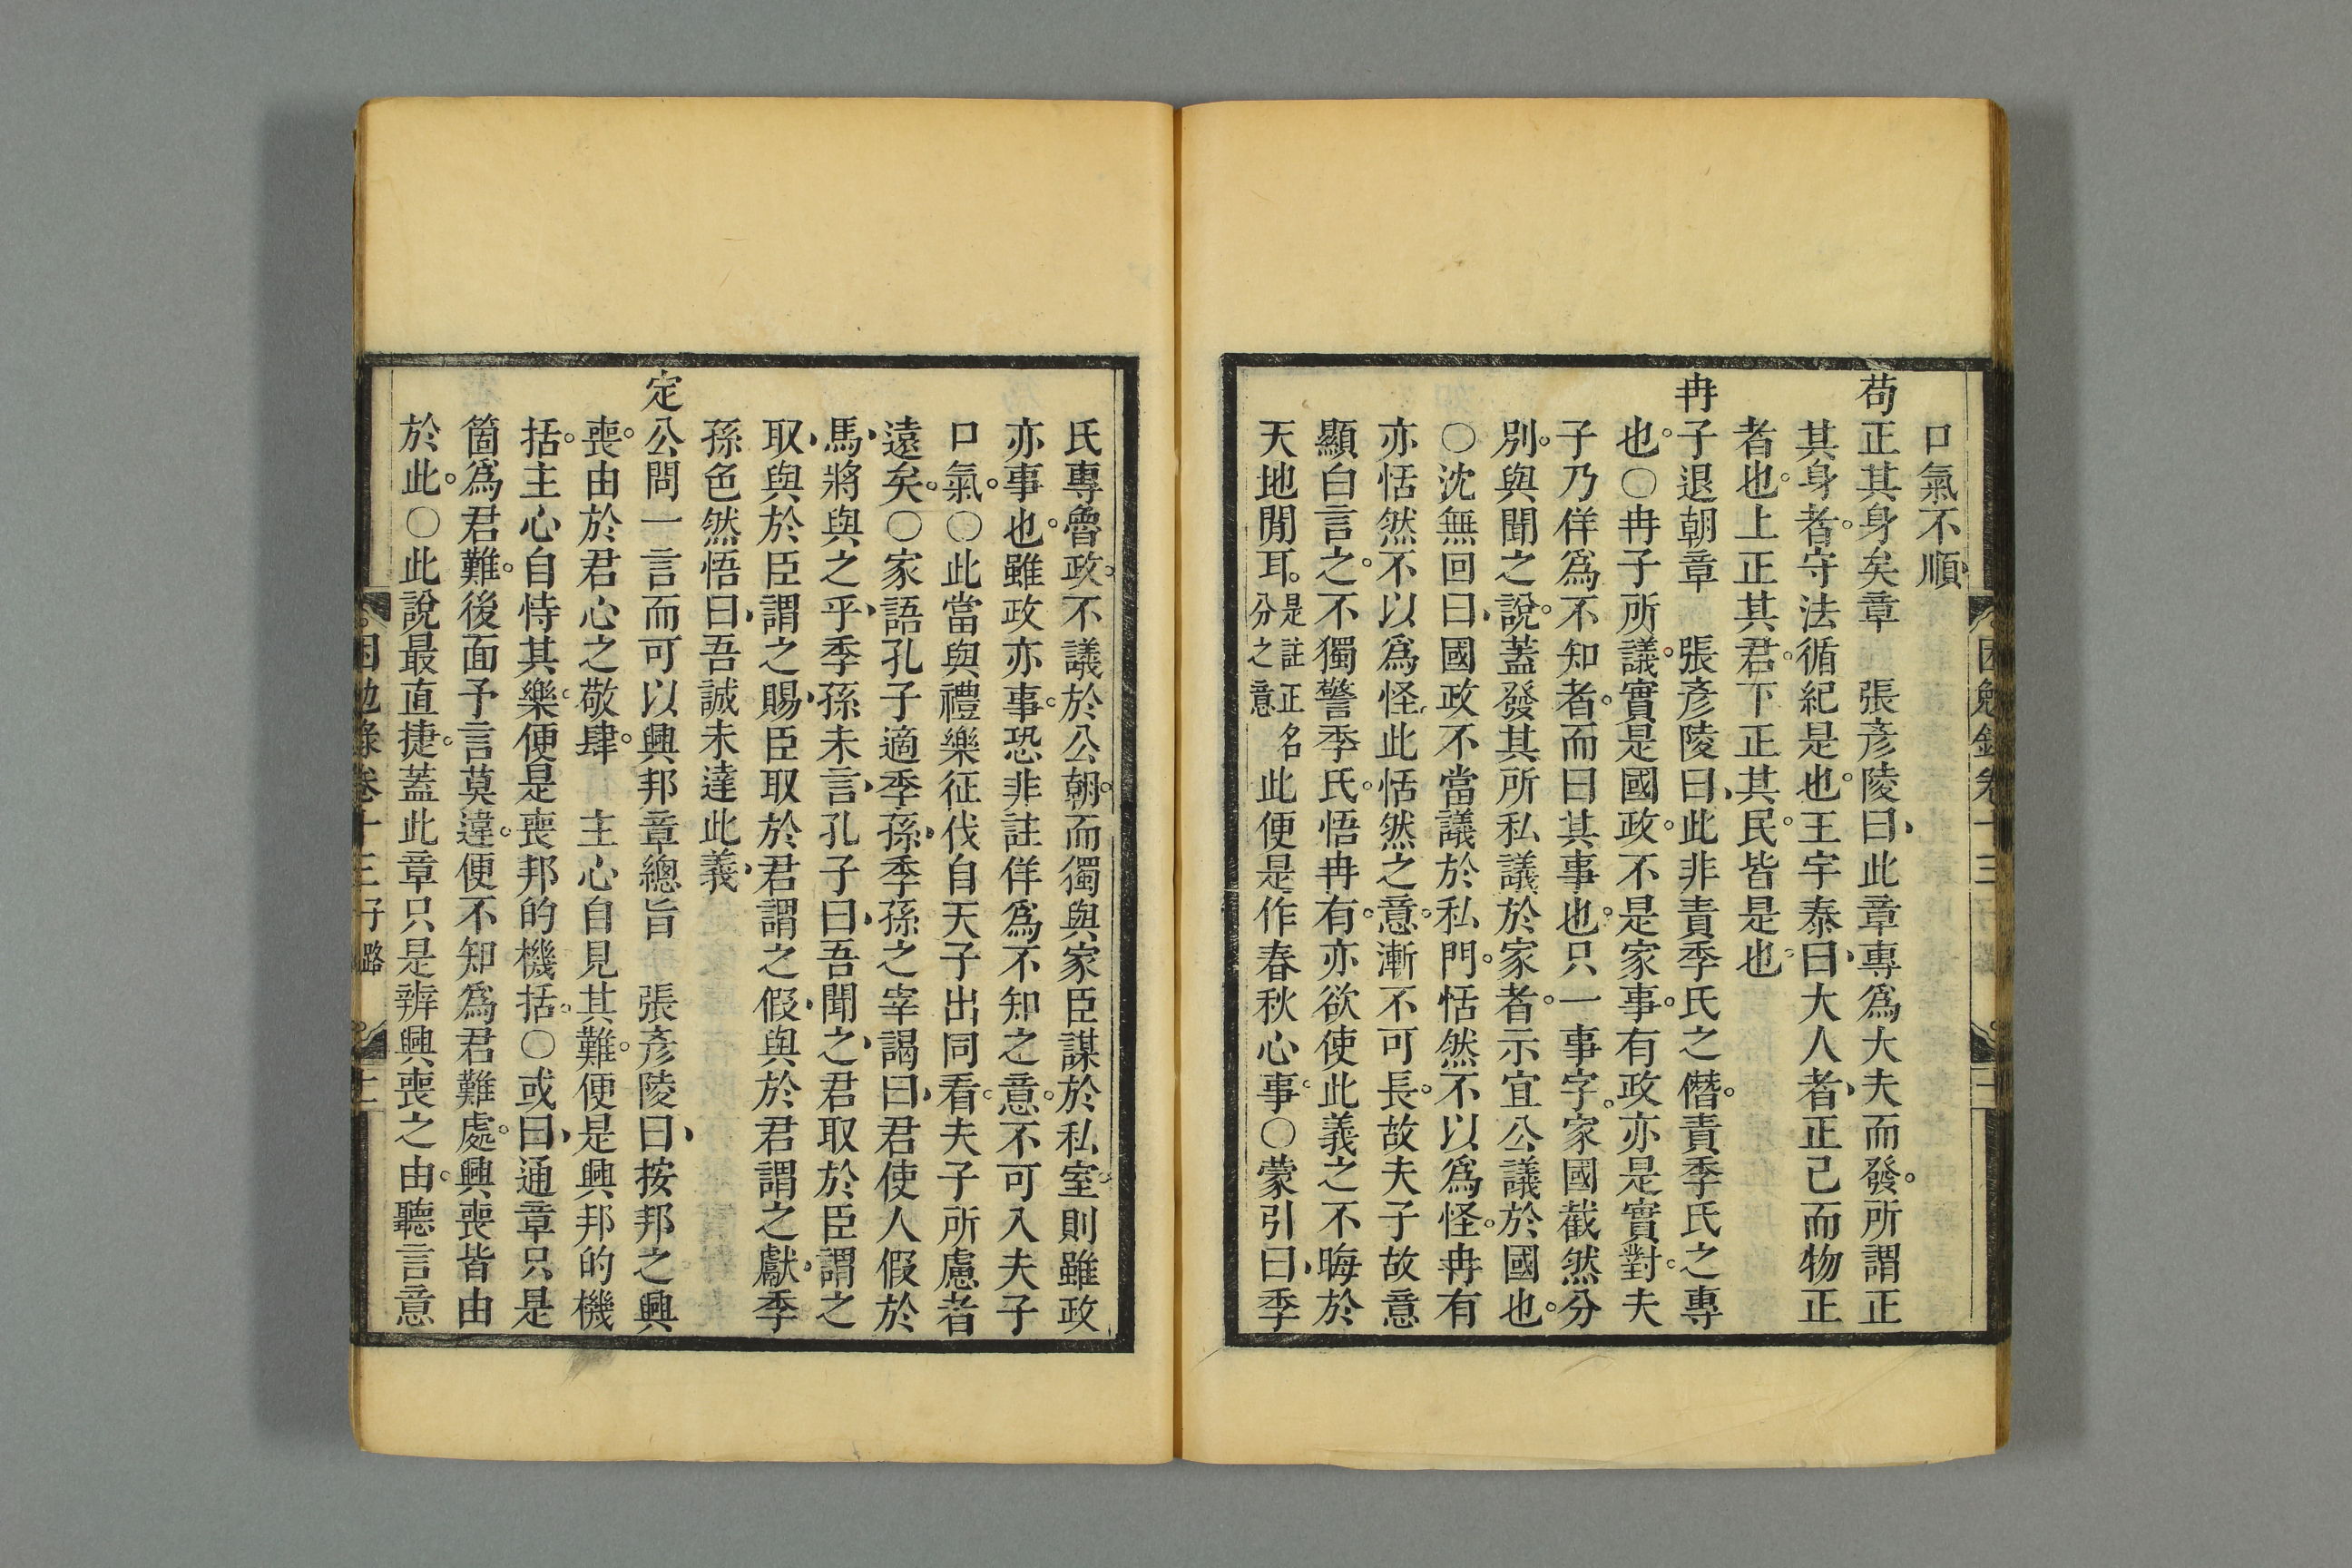 口氣不順
苟正其身矣章　張彥陵曰此章專爲大夫而發。所謂正
其身者。守法循紀是也。王宇泰曰大人者正己而物正
者也。上正其君。下正其民。皆是也。
冉子退朝章　張彥陵曰此非責季氏之僭。責季氏之專
也。○冉子所議。實是國政。不是家事。有政亦是實對。夫
子乃佯爲不知者。而曰其事也。只一事字。家國截然分
別。與聞之說。蓋發其所私議於家者。示宜公議於國也。
○沈無回曰國政不當議於私門。恬然不以爲怪。冉有
亦恬然不以爲怪。此恬然之意。漸不可長。故夫子故意
顯白言之。不獨警季氏。悟冉有。亦欲使此義之不晦於
天地閒耳。是註正名分之意此便是作春秋心事。○蒙引曰季
氏專魯政。不議於公朝。而獨與家臣謀於私室。則雖政
亦事也。雖政亦事。恐非註佯爲不知之意。不可入夫子
口氣。○此當與禮樂征伐自天子出同看。夫子所慮者
遠矣。○家語孔子適季孫季孫之宰謁曰君使人假於
馬將與之乎季孫未言孔子曰吾聞之君取於臣謂之
取與於臣謂之賜臣取於君謂之假與於君謂之獻季
孫色然悟曰吾誠未達此義
定公問一言而可以興邦章總旨　張彥陵曰按邦之興
喪。由於君心之敬肆。　主心自見其難。便是興邦的機
括。主心自恃其樂。便是喪邦的機括。○或曰通章只是
箇爲君難。後面予言莫違。便不知爲君難處。興喪皆由
於此。○此說最直捷。蓋此章只是辨興喪之由。聽言意
困勉錄卷十三子路